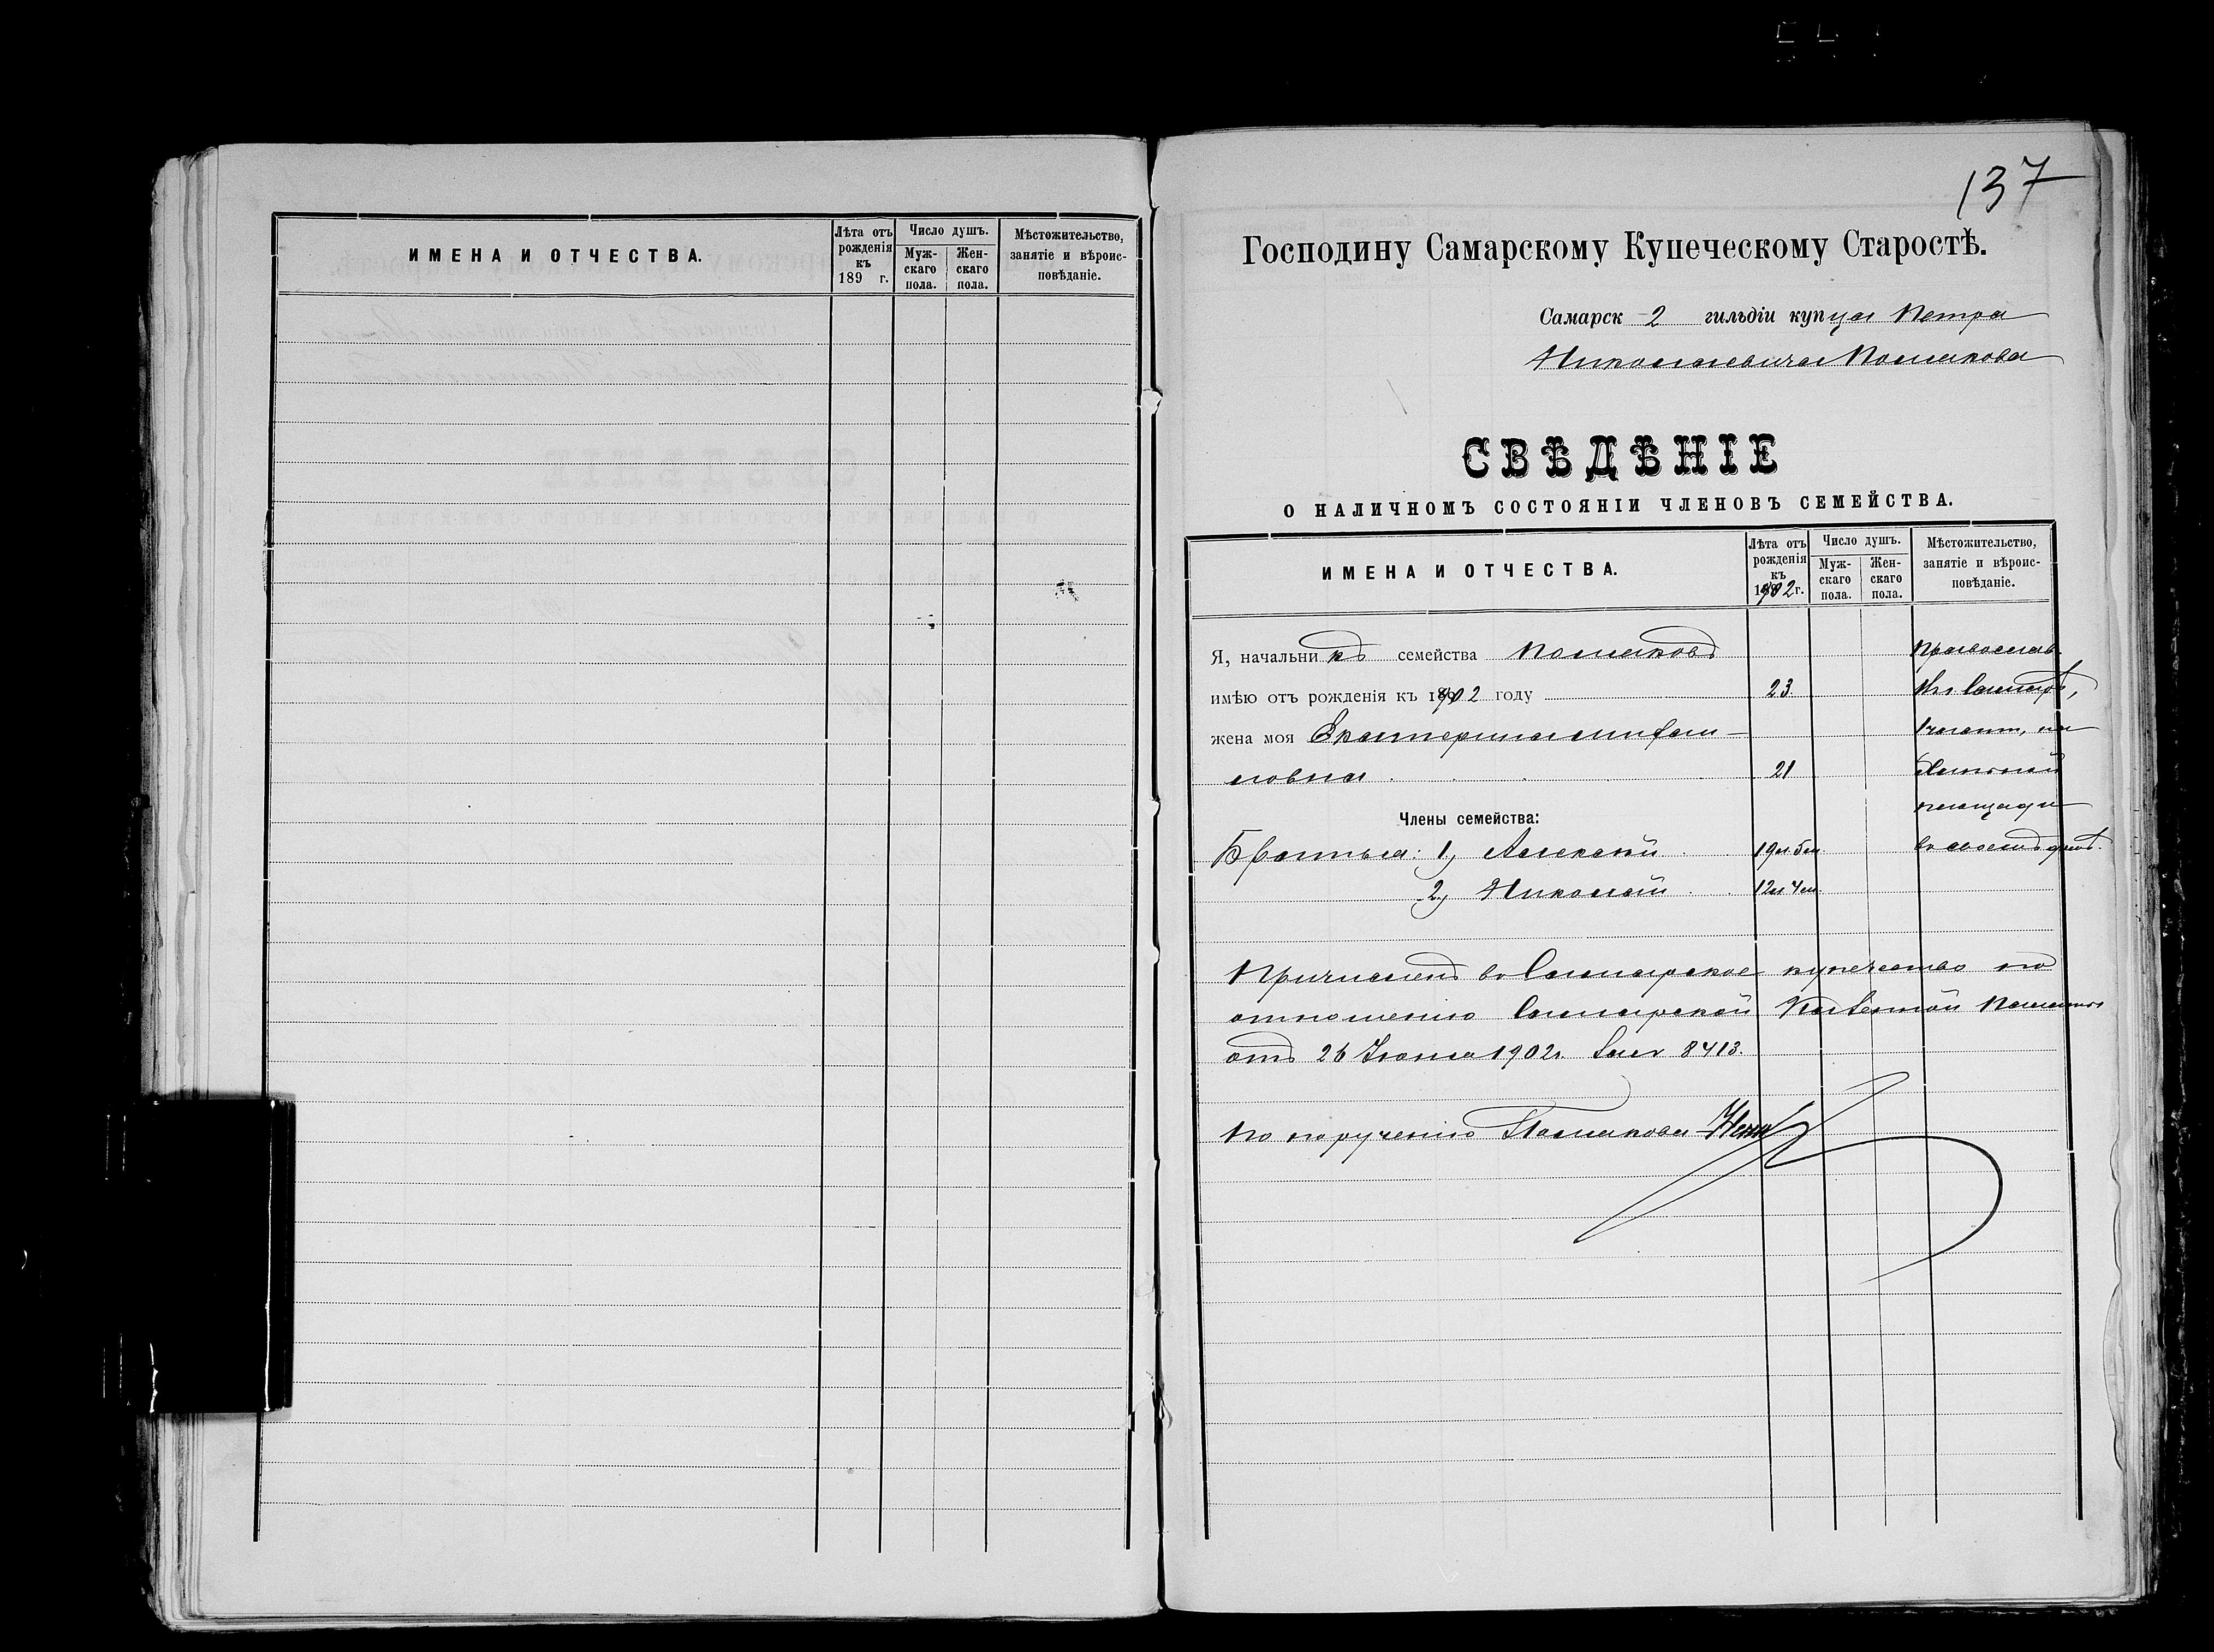 ИМЕНА И ОТЧЕСТВА.
Лѣта отъ рожденія къ 189 г.
Число душъ.
Мужскаго пола.
Женскаго пола.
Мѣстожительство, занятіе и вѣроисповѣданіе.
137
Господину Самарскому Купеческому Старостѣ.
Самарск 2 гильдіи купца Петра
Николаевича Полякова
СВѢДѢНІЕ
О НАЛИЧНОМЪ СОСТОЯНІИ ЧЛЕНОВЪ СЕМЕЙСТВА.
ИМЕНА И ОТЧЕСТВА.
Лѣта отъ рожденія къ 1902 г.
Число душъ.
Мужскаго пола.
Женскаго пола.
Мѣстожительство, занятіе и вѣроисповѣданіе.
Я, начальникъ семейства Поляковъ Православ.
имѣю отъ рожденія къ 1902 году 23 Въ г. Самарѣ,
жена моя Екатерина
21
Члены семейства: площади
Братья: 1) Алексѣй 19 л. 5 м. въ своемъ домѣ.
2) Николай 12 л. 4 м.
Причисленъ въ Самарское купечество по
отношенію Самарской Казенной Палаты
отъ 26 1902 г. за № 8413.
По порученію Полякова